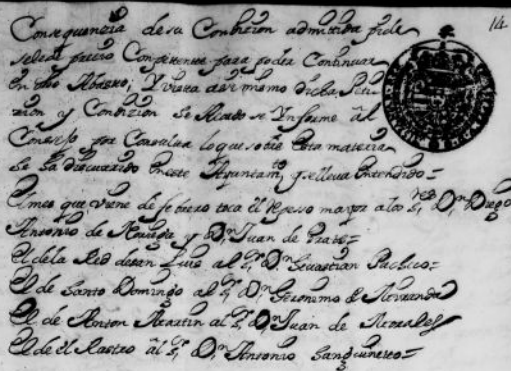 14
Consequenzia de su Condicion admitida pide
se le de precio Competente para poder Continuar
en dho Abasto; Y vista assimismo dicha Peti
cion y Condizion se Acordo se Informe âl
Consejo por Consulta lo que sobre esta materia
se ha discurrido en este Ayuntamto y se lleua entendido=
El mes que viene de febrero toca el Repesso mayor a los Sres Dn Diego
Antonio de y Dn Juan de Prats=
El de la Red de san Luis al Sr Dn Seuastian Pacheco=
El de Santo Domingo al Sr Dn Geronimo de Miranda
El de Anton Martin al Sr Dn Juan de Morales
El de el Rastro âl Sr Dn Antonio Sanguineto=